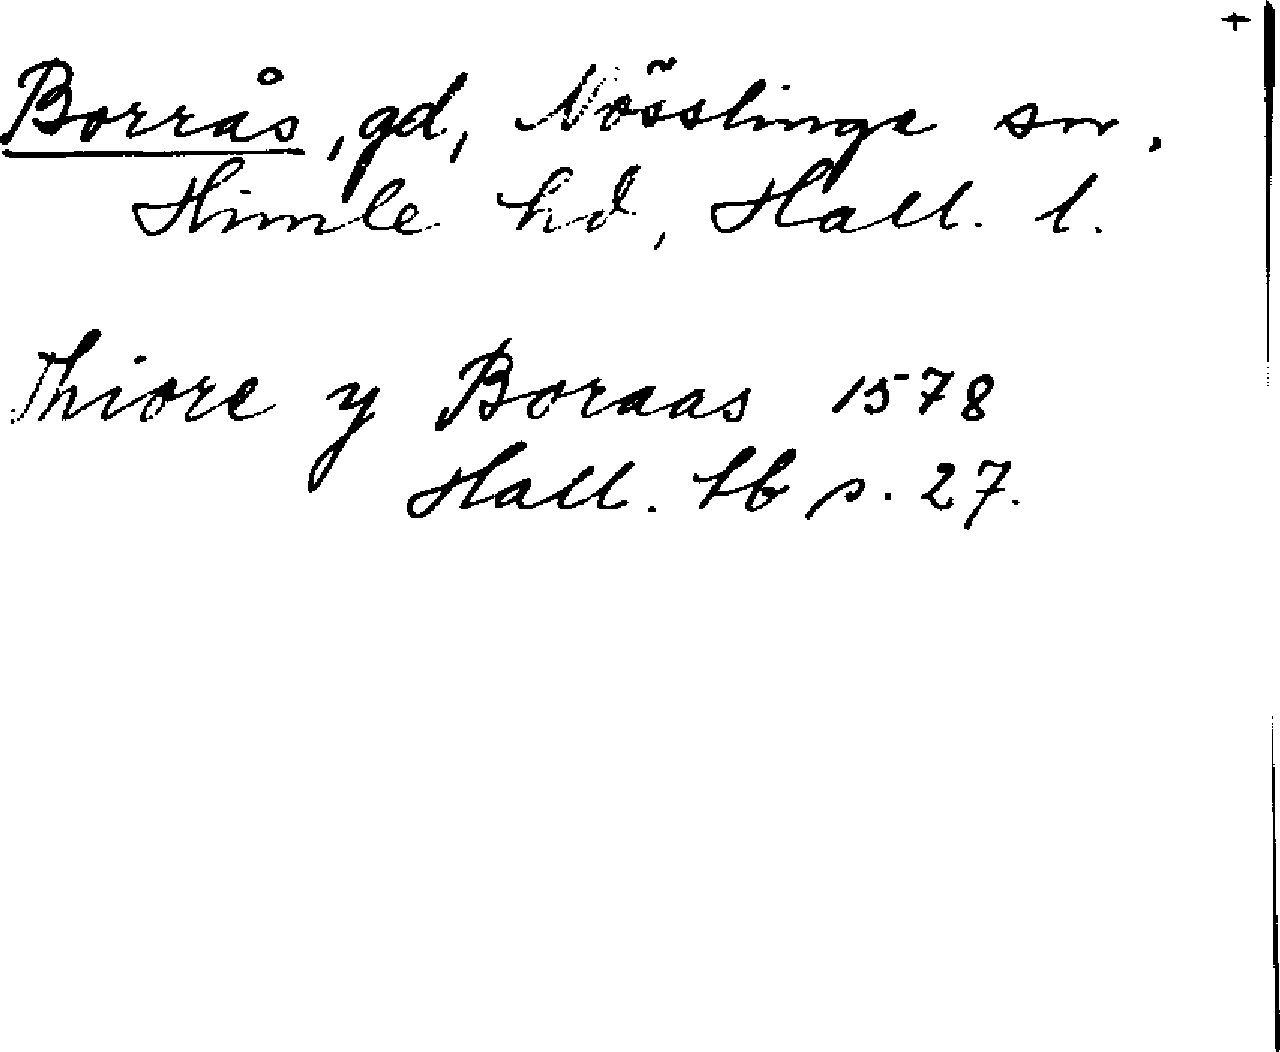 +
Borrås, gd, Nösslinge sn.
Himle hd, Hall. l.
Thiore y Boraas 1578
Hall. tb s. 27.